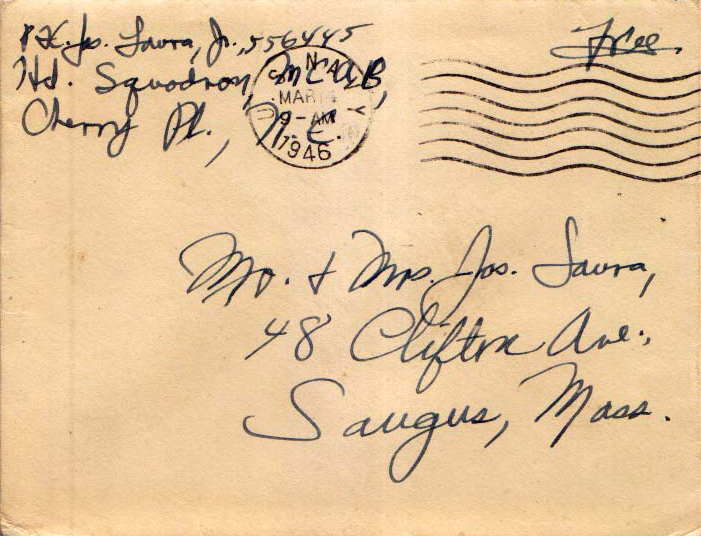 Pfc. Jos. Laura, Jr., 556445
Hd. Squadron, MCAB,
Cherry Pt., N.C.
Free.
U.S. NAVY
MAR
9-AM
1946
Mr. & Mrs. Jos. Laura,
48 Clifton Ave.,
Saugus, Mass.